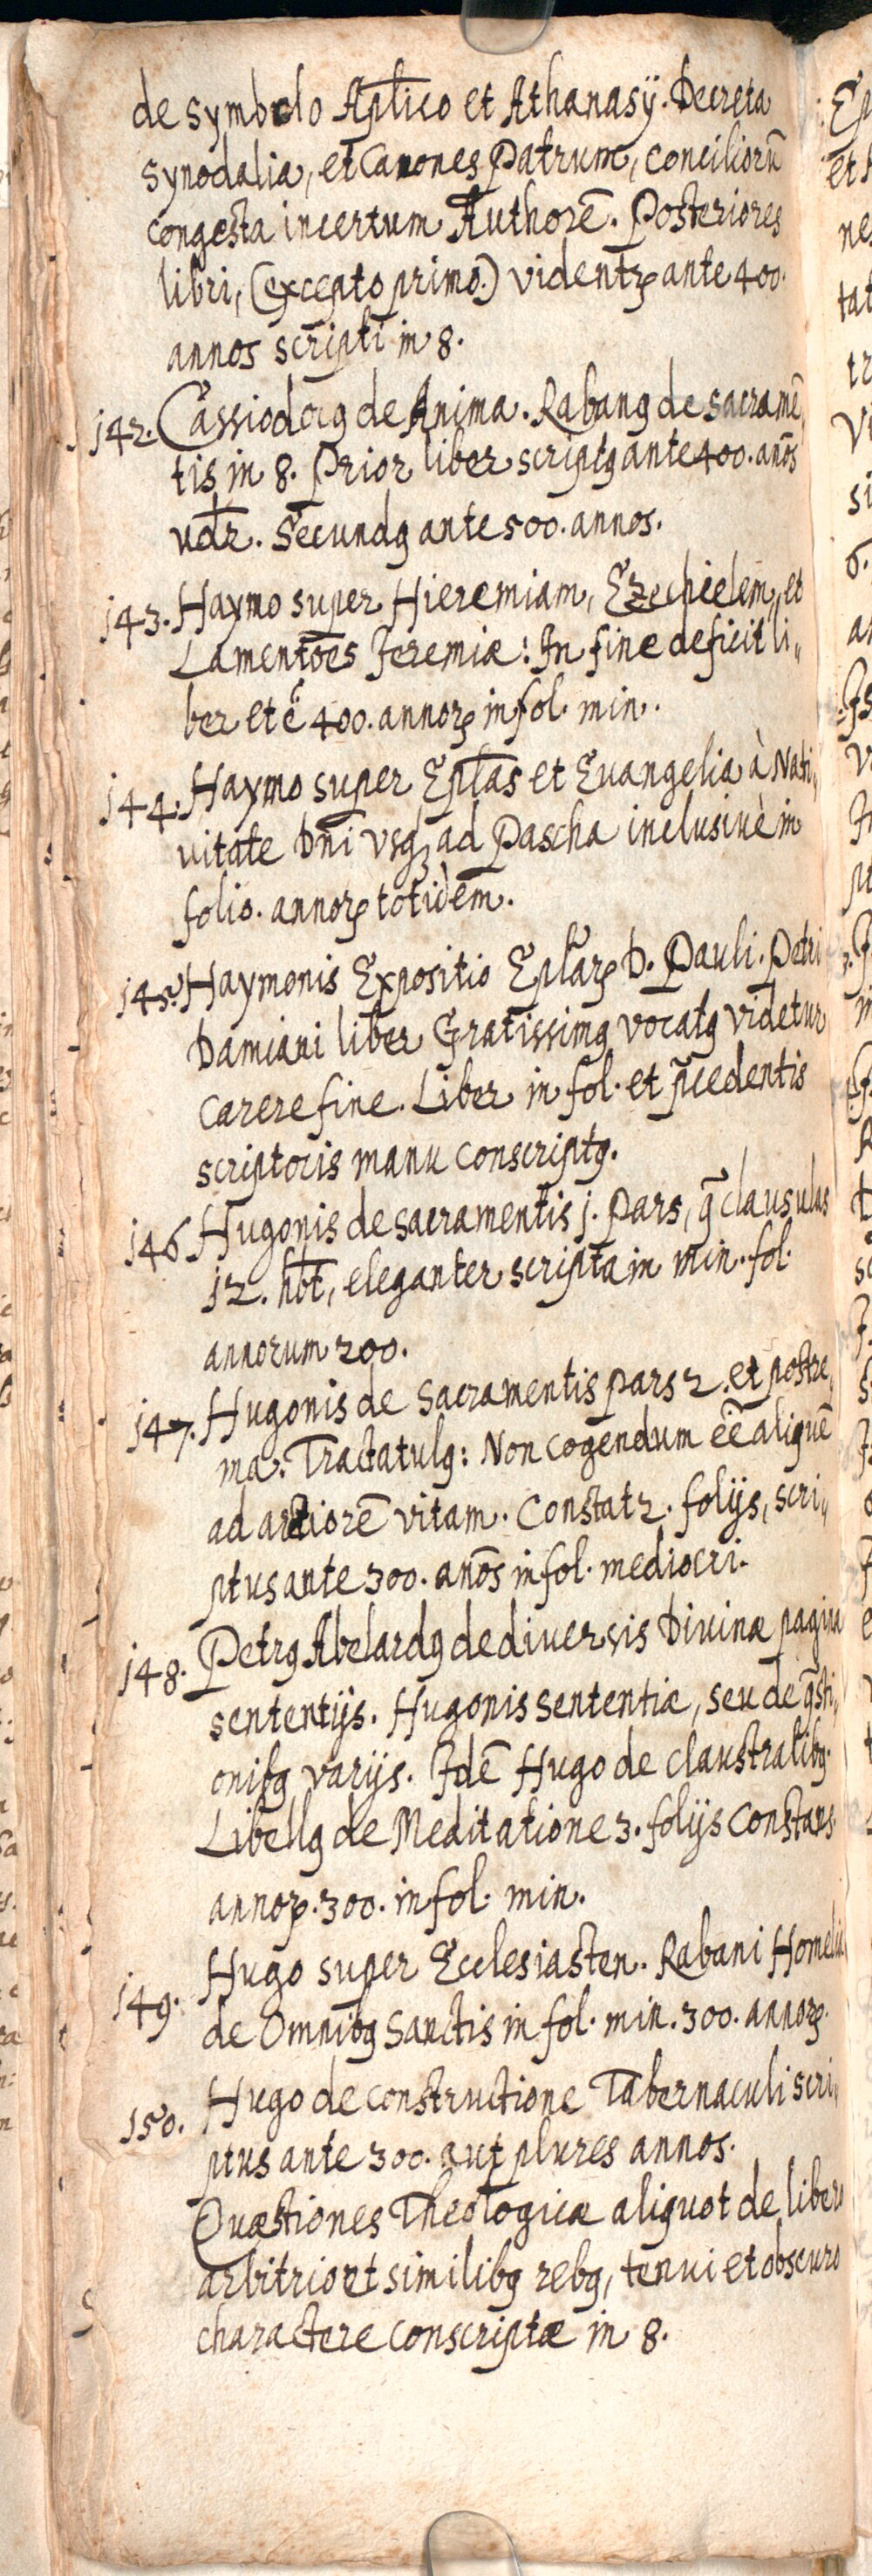 de Symbolo Aplico et Athanasÿ. Decreta
Synodalia, et Canones Patrum, conciliorū
congesta incertum Authorē. Posteriores
libri, (excepto primo.) videntꝛ ante 400.
annos scripti in 8.
142. Cassiodorꝰ de Anima. Rabanꝰ de sacramē„
tis in 8. Prior liber scriptꝰ ante 400. anōs
vdr̄. Secundꝰ ante 500. annos.
143. Haymo super Hieremiam, Ezechielem, et
Lamentōes Jeremiæ: In fine deficit li„
ber et ē 400. annoꝝ in fol. min.
144. Haymo super Ep̄las et Euangelia à Nati„
uitate Dn̄i vsqꝫ ad Pascha inclusiuè in
folio. annoꝝ totidem.
145. Haymonis Expositio Ep̄laꝝ D. Pauli. Petri
Damiani liber Gratissimꝰ vocatꝰ videtur
carere fine. Liber in fol. et p̄cedentis
scriptoris manu conscriptꝰ.
146 Hugonis de sacramentis j. Pars, q̄ clausulas
12. hb̄t, eleganter scripta in min. fol.
annorum 200.
147. Hugonis de Sacramentis pars 2. et postre„
ma. Tractatulꝰ: Non cogendum eē̄ aliquē
ad arctiorē vitam. Constat 2. folijs, scri„
ptus ante 300. anōs in fol. mediocri.
148. Petrꝰ Abelardꝰ de diuersis Diuinæ pagina
sententijs. Hugonis sententiæ, seu de q̄sti„
onibꝰ varijs. Idē Hugo de claustralibꝰ.
Libellꝰ de Meditatione 3. folijs constans.
annoꝝ. 300. in fol. min.
149. Hugo super Ecclesiasten. Rabani Homeliæ
de Omnibꝰ Sanctis in fol. min. 300. annoꝝ.
150. Hugo de constructione Tabernaculi scri„
ptus ante 300. aut plures annos.
Quæstiones Theologicæ aliquot de libero
arbitrio et similibꝰ rebꝰ, tenui et obscuro
charactere conscriptæ in 8.